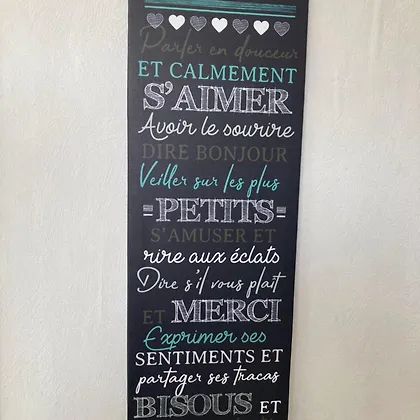 Parler en douceur
ET CALMEMENT
S'AIMER
Avoir le sourire
DIRE BONJOUR
Veiller sur les plus
-PETITS-
S'AMUSER ET
rire aux éclats
Dire s'il vous plaît
ET MERCI
Exprimer ses
SENTIMENTS ET
partager ses tracas
BISOUS ET